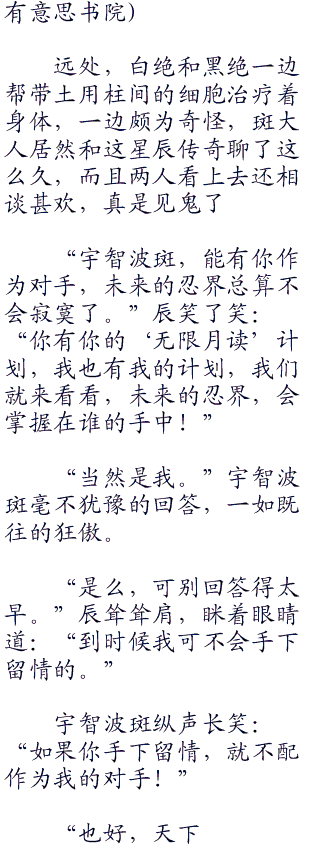 有意思书院）
远处，白绝和黑绝一边
帮带土用柱间的细胞治疗着
身体，一边颇为奇怪，斑大
人居然和这星辰传奇聊了这
么久，而且两人看上去还相
谈甚欢，真是见鬼了
“宇智波斑，能有你作
为对手，未来的忍界总算不
会寂寞了。”辰笑了笑：
“你有你的‘无限月读’计
划，我也有我的计划，我们
就来看看，未来的忍界，会
掌握在谁的手中！”
“当然是我。”宇智波
斑毫不犹豫的回答，一如既
往的狂傲。
“是么，可别回答得太
早。”辰耸耸肩，眯着眼睛
道：“到时候我可不会手下
留情的。”
宇智波斑纵声长笑：
“如果你手下留情，就不配
作为我的对手！”
“也好，天下